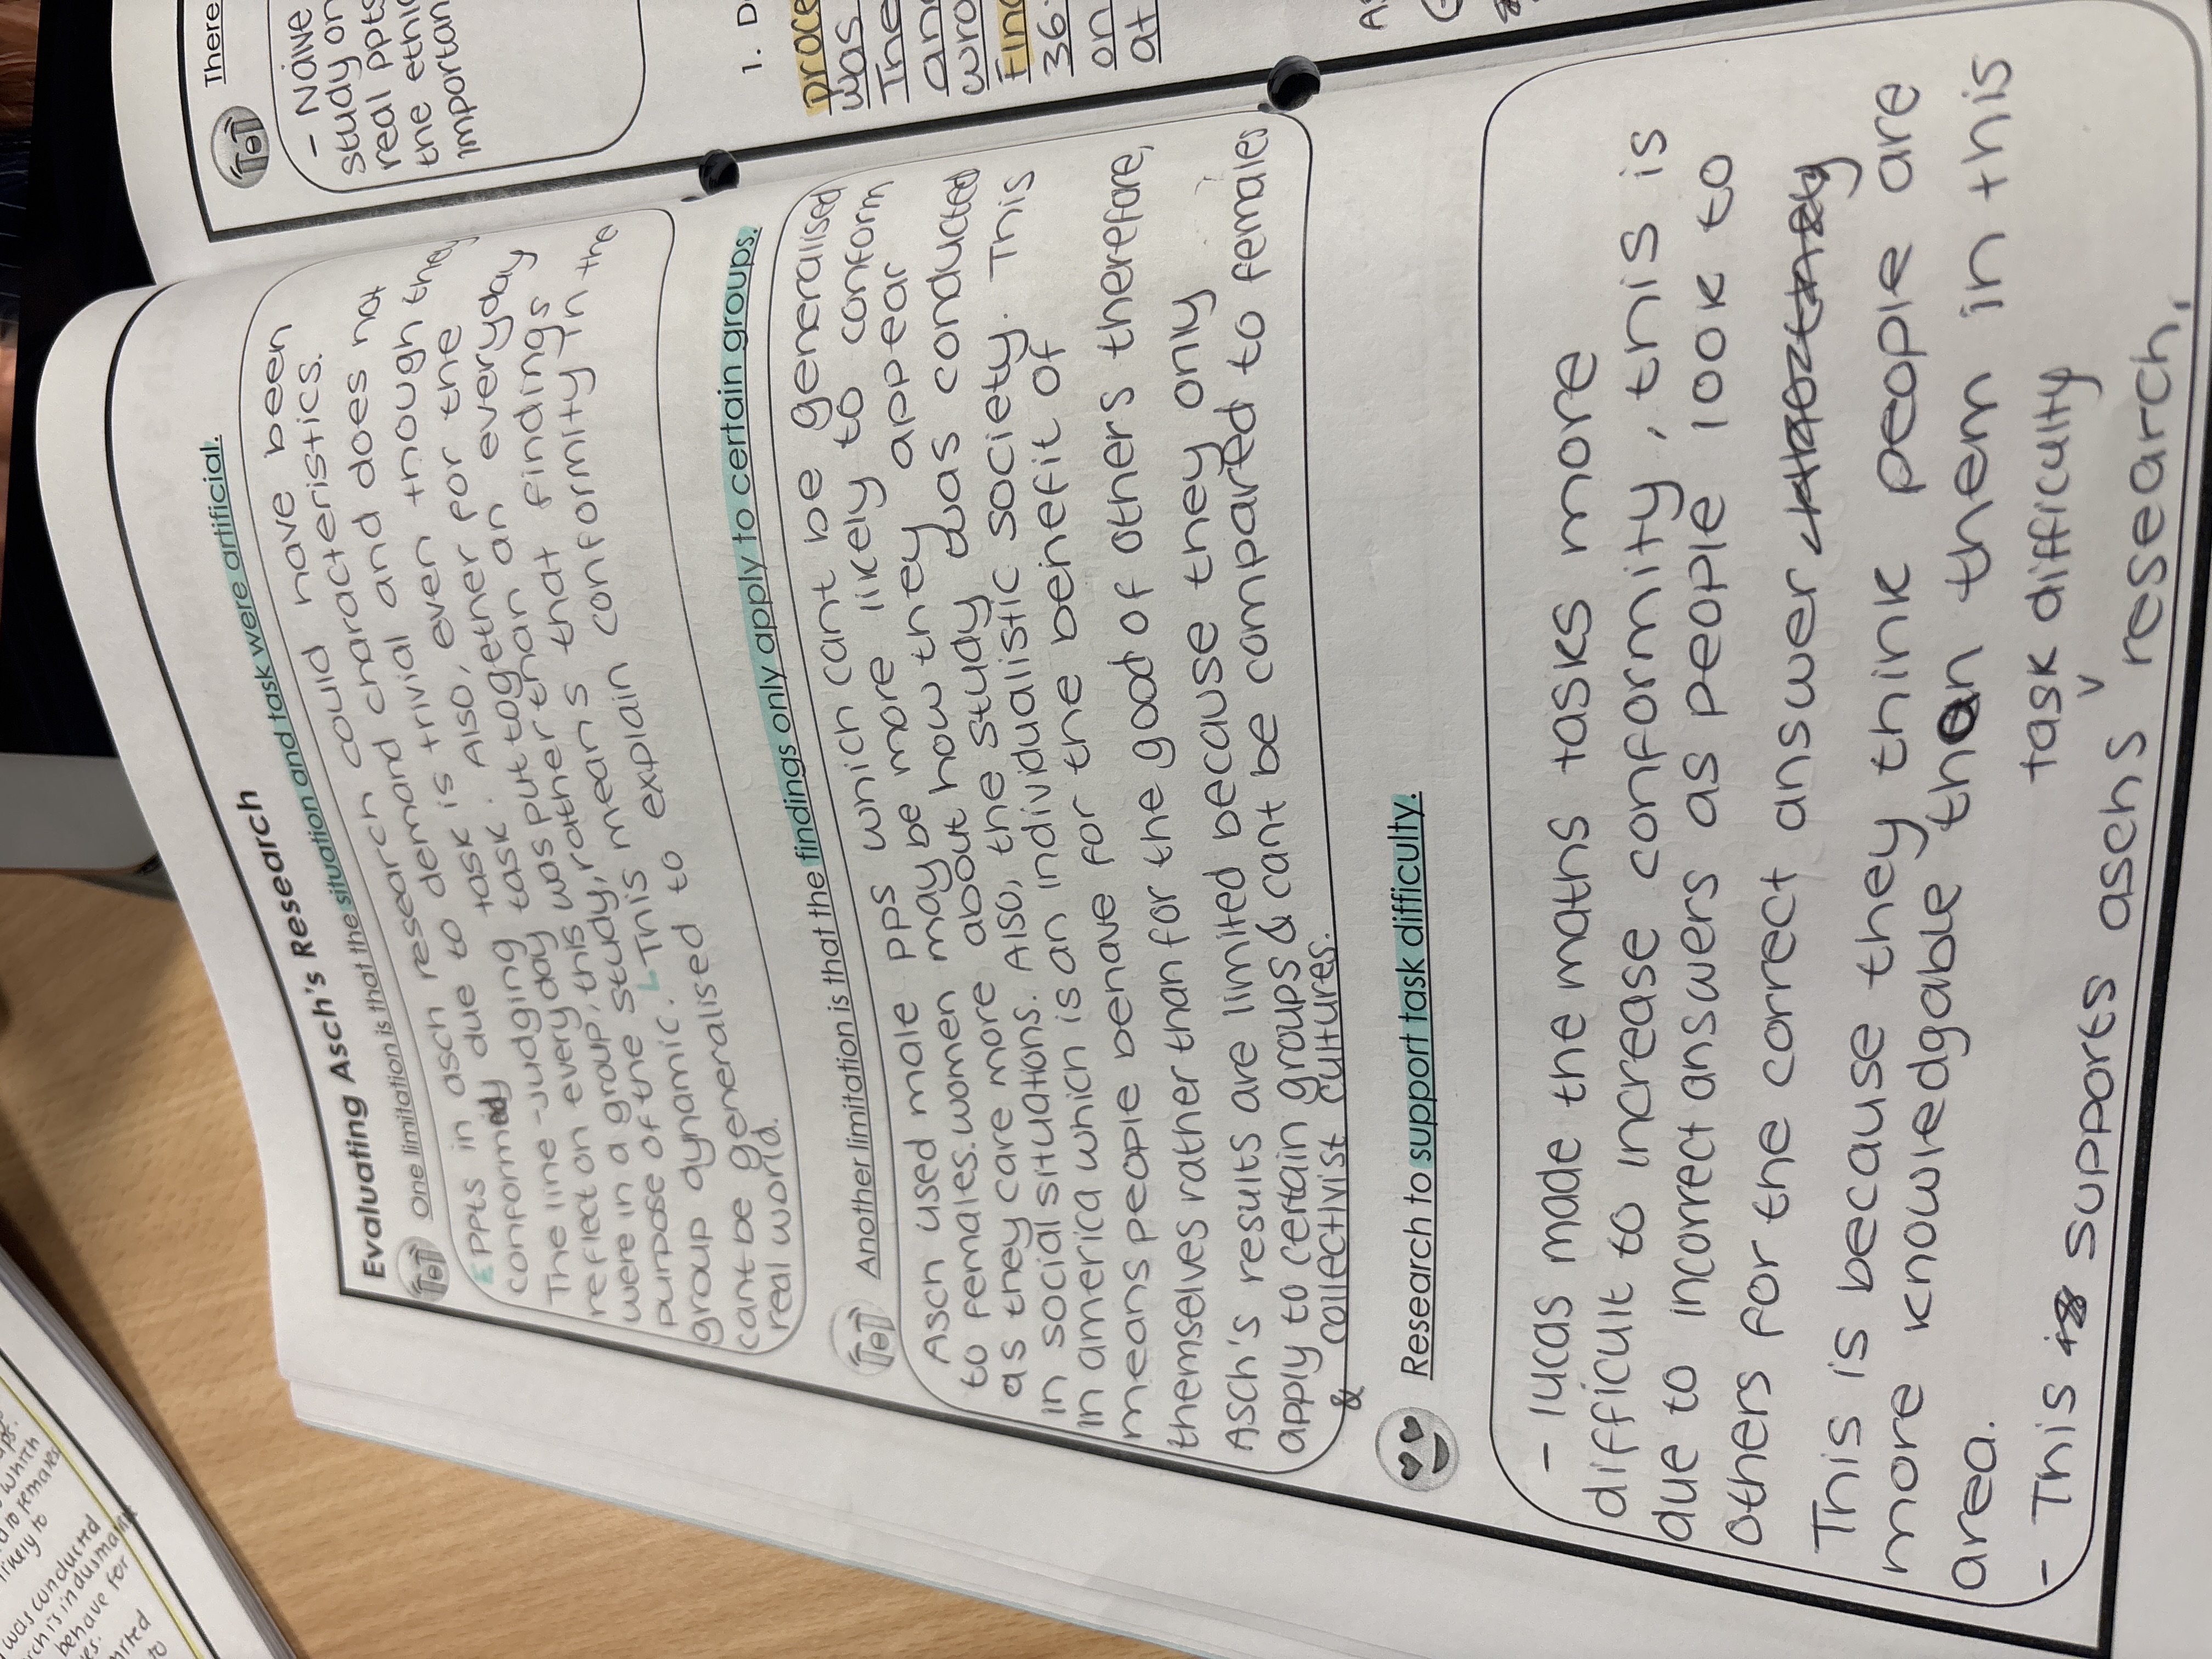 Evaluating Asch's Research
One limitation is that the situation and task were artificial.
E PPts in asch research could have been
conformed due to demand characteristics.
The line-judging task is trivial and does not
reflect on everyday task. Also, even though they
were in a group, this was put together for the
purpose of the study, rather than an everyday
group dynamic. L This means that findings
cant be generalised to explain conformity in the
real world.
Another limitation is that the findings only apply to certain groups.
Asch used male pps which cant be generalised
to females. women may be more likely to conform
as they care more about how they appear
in social situations. Also, the study was conducted
in america which is an individualistic society. This
means people behave for the benefit of
themselves rather than for the good of others therefore,
Asch's results are limited because they only
apply to certain groups & cant be compared to females
& collectivist cultures.
Research to support task difficulty.
- lucas made the maths tasks more
difficult to increase conformity, this is
due to incorrect answers as people look to
others for the correct answer
This is because they think people are
more knowledgable than them in this
area.
- This supports asch's task difficulty research.
There
- Naive
study on
real ppts
the ethic
importan
1. D
proce
was
The
and
wro
Find
36
on
at
was conducted
behave for